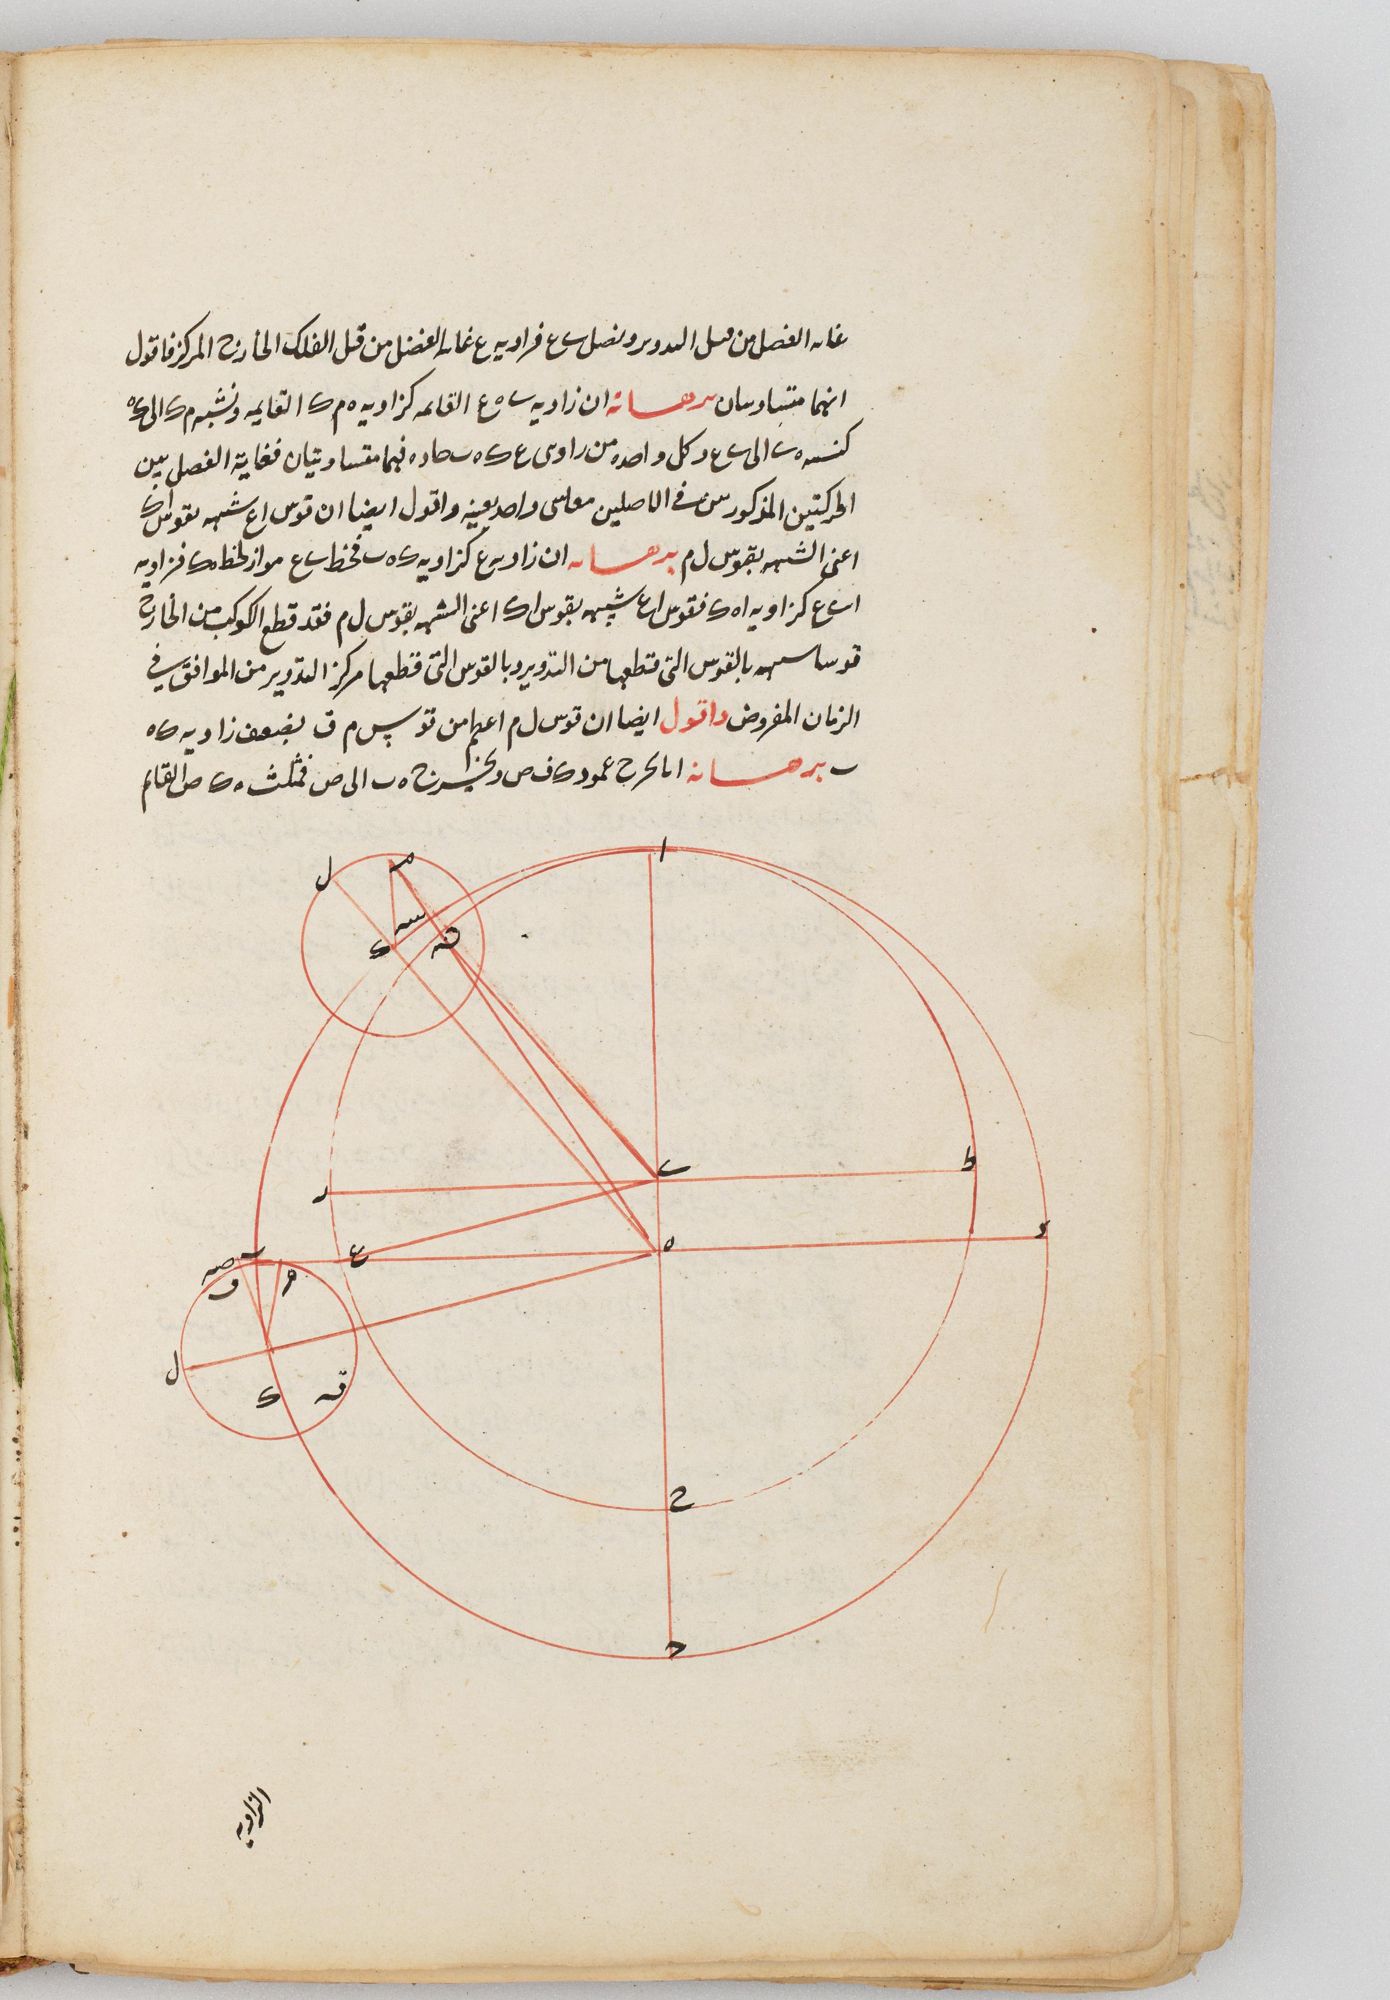 غاىه الفصل من قبل التدوير ونصل ىع فزاويه ع غاىه الفضل من قبل الفلك الخارج المركز فاقول
انهما متساوىتان برهانه ان زاويه ىه ع القائمه كزاويه ه م ك القايمه ونسبه م ك الى ك ه
كنسبه ه ى الى ى ع وكل واحده من زاوىى ع ك ه ى حاده فهما متساويتان فغاية الفصل بين
الحركتين المذكورىىن فى الاصلين معا شى واحد بعينه واقول ايضا ان قوس اع شبيهه بقوس اك
اعنى الشبيهه بقوس ل م برهانه ان زاويه ع كزاويه ك ه ى فخط ىع مواز لخط ه ك فزاويه
اىع كزاويه اه ك فقوس اع شبيهه بقوس اك اعنى الشبيهه بقوس ل م فقد قطع الكوكب من الخارج
قوسا شبيهه بالقوس التى قطعها من التدوير وبالقوس التى قطعها مركز التدوير من الموافق فى
الزمان المفروض واقول ايضا ان قوس ل م اعظم من قوس م ق بضعف زاويه ك ه
ب برهانه انا نخرج عمود ك ف ص ونخرج ه ب الى ص فمثلث ه ك ص القايم
ا
ل
م
س
ك
ن
ى
ط
ر
ه
د
ع
ب
ص
ف
م
ل
ك
ق
ح
ج
الزاويه